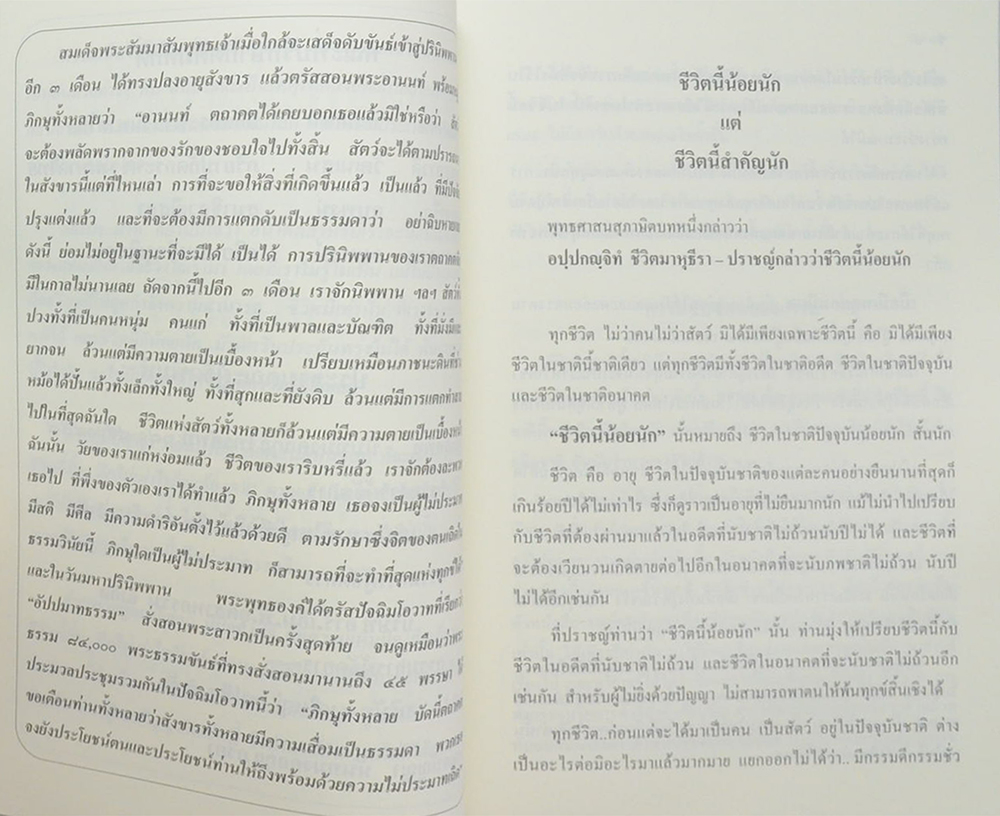 สมเด็จพระสัมมาสัมพุทธเจ้าเมื่อใกล้จะเสด็จดับขันธ์เข้าสู่ปรินิพพาน
อีก ๓ เดือน ได้ทรงปลงอายุสังขาร แล้วตรัสสอนพระอานนท์
ภิกษุทั้งหลายว่า “อานนท์ ตถาคตได้เคยบอกเธอแล้วมิใช่หรือว่า
จะต้องพลัดพรากจากของรักของชอบใจไปทั้งสิ้น สัตว์จะได้ตามปรารถ
ในสังขารนี้แต่ที่ไหนเล่า การที่จะขอให้สิ่งที่เกิดขึ้นแล้ว เป็นแล้ว
ปรุงแต่งแล้ว และที่จะต้องมีการแตกดับเป็นธรรมดาว่า อย่าฉิบหาย
ดังนี้ ย่อมไม่อยู่ในฐานะที่จะมีได้ เป็นได้ การปรินิพพานของเราตถาคต
มีในกาลไม่นานเลย ถัดจากนี้ไปอีก ๓ เดือน เราจักนิพพาน ฯลฯ
ปวงทั้งที่เป็นคนหนุ่ม คนแก่ ทั้งที่เป็นพาลและบัณฑิต ทั้งที่มั่งมี
ยากจน ล้วนแต่มีความตายเป็นเบื้องหน้า เปรียบเหมือนภาชนะดินที่
หม้อได้ปั้นแล้วทั้งเล็กทั้งใหญ่ ทั้งที่สุกและที่ยังดิบ ล้วนแต่มีการแตกทำลาย
ไปในที่สุดฉันใด ชีวิตแห่งสัตว์ทั้งหลายก็ล้วนแต่มีความตายเป็นเบื้อง
ฉันนั้น วัยของเราแก่หง่อมแล้ว ชีวิตของเราริบหรี่แล้ว เราจักต้องละ
เธอไป ที่พึ่งของตัวเองเราได้ทำแล้ว ภิกษุทั้งหลาย เธอจงเป็นผู้ไม่ประมาท
มีสติ มีศีล มีความดำริอันตั้งไว้แล้วด้วยดี ตามรักษาซึ่งจิตของตนเถิด
ธรรมวินัยนี้ ภิกษุใดเป็นผู้ไม่ประมาท ก็สามารถที่จะทำที่สุดแห่งทุกข์ได้
และในวันมหาปรินิพพาน พระพุทธองค์ได้ตรัสปัจฉิมโอวาทที่เรียก
“อัปปมาทธรรม” สั่งสอนพระสาวกเป็นครั้งสุดท้าย จนดูเหมือนว่า
ธรรม ๘๔,๐๐๐ พระธรรมขันธ์ที่ทรงสั่งสอนมานานถึง ๔๕ พรรษา
ประมวลประชุมรวมกันในปัจฉิมโอวาทนี้ว่า “ภิกษุทั้งหลาย บัดนี้ตถาคต
ขอเตือนท่านทั้งหลายว่าสังขารทั้งหลายมีความเสื่อมเป็นธรรมดา
จงยังประโยชน์ตนและประโยชน์ท่านให้ถึงพร้อมด้วยความไม่ประมาทเถิด”
ชีวิตนี้น้อยนัก
แต่
ชีวิตนี้สำคัญนัก
พุทธศาสนสุภาษิตบทหนึ่งกล่าวว่า
อปฺปกญฺจิทํ ชีวิตมาหุธีรา – ปราชญ์กล่าวว่าชีวิตนี้น้อยนัก
ทุกชีวิต ไม่ว่าคนไม่ว่าสัตว์ มิได้มีเพียงเฉพาะชีวิตนี้ คือ มิได้มีเพียง
ชีวิตในชาตินี้ชาติเดียว แต่ทุกชีวิตมีทั้งชีวิตในชาติอดีต ชีวิตในชาติปัจจุบัน
และชีวิตในชาติอนาคต
“ชีวิตนี้น้อยนัก” นั้นหมายถึง ชีวิตในชาติปัจจุบันน้อยนัก สั้นนัก
ชีวิต คือ อายุ ชีวิตในปัจจุบันชาติของแต่ละคนอย่างยืนนานที่สุดก็
เกินร้อยปีได้ไม่เท่าไร ซึ่งก็ดูราวเป็นอายุที่ไม่ยืนมากนัก แม้ไม่นำไปเปรียบ
กับชีวิตที่ต้องผ่านมาแล้วในอดีตที่นับชาติไม่ถ้วนนับปีไม่ได้ และชีวิตที่
จะต้องเวียนวนเกิดตายต่อไปอีกในอนาคตที่จะนับภพชาติไม่ถ้วน นับปี
ไม่ได้อีกเช่นกัน
ที่ปราชญ์ท่านว่า “ชีวิตนี้น้อยนัก” นั้น ท่านมุ่งให้เปรียบชีวิตนี้กับ
ชีวิตในอดีตที่นับชาติไม่ถ้วน และชีวิตในอนาคตที่จะนับชาติไม่ถ้วนอีก
เช่นกัน สำหรับผู้ไม่ยิ่งด้วยปัญญา ไม่สามารถพาตนให้พ้นทุกข์สิ้นเชิงได้
ทุกชีวิต..ก่อนแต่จะได้มาเป็นคน เป็นสัตว์ อยู่ในปัจจุบันชาติ ต่าง
เป็นอะไรต่อมิอะไรมาแล้วมากมาย แยกออกไม่ได้ว่า.. มีกรรมดีกรรมชั่ว